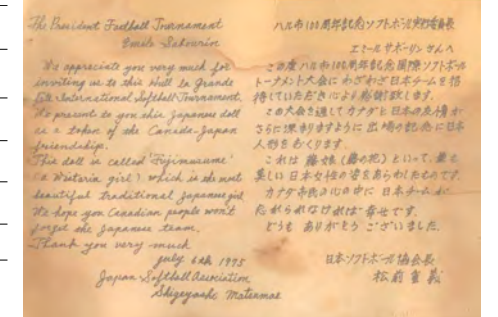 The President Football Tournament
Emile Sabourin
We appreciate you very much for
inviting us to this Hull la Grande
Fête International Softball Tournament.
We present to you this Japanese doll
as a token of the Canada-Japan
friendship.
This doll is called "Fujimusume"
(a Wistaria girl) which is the most
beautiful traditional Japanese girl
We hope you Canadian people won't
forget the Japanese team.
Thank you very much
July 6th 1975
Japan Softball Association
Shigeyoshi Matsumae
ハル市100周年記念ソフトボール実行委員長
エミールサボーリンさんへ
この度ハル市100周年記念国際ソフトボール
トーナメント大会にわざわざ日本チームを招
待していただき心より感謝致します。
この大会を通してカナダと日本の友情が
さらに深まりますように出場の記念に日本
人形をおくります。
これは藤娘(藤の花)といって、最も
美しい日本女性の姿をあらわしたものです。
カナダ市民の心の中に日本チームが
忘れられなければ幸せです。
どうもありがとうございました。
日本ソフトボール協会長
松前重義